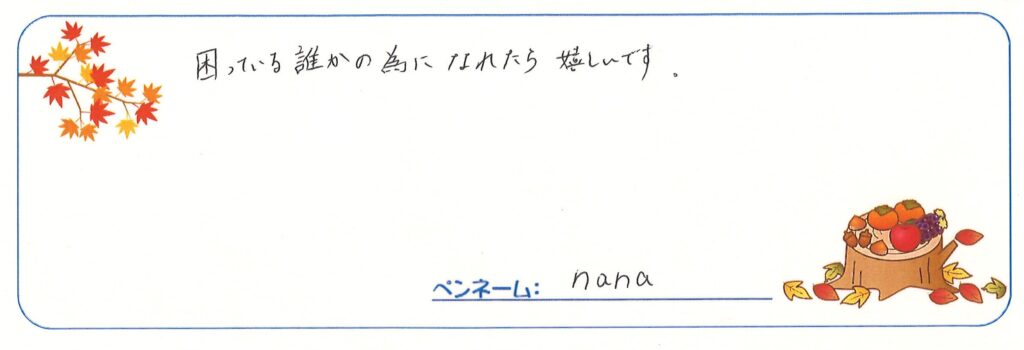 困っている誰かの為になれたら嬉しいです。
ペンネーム: nana